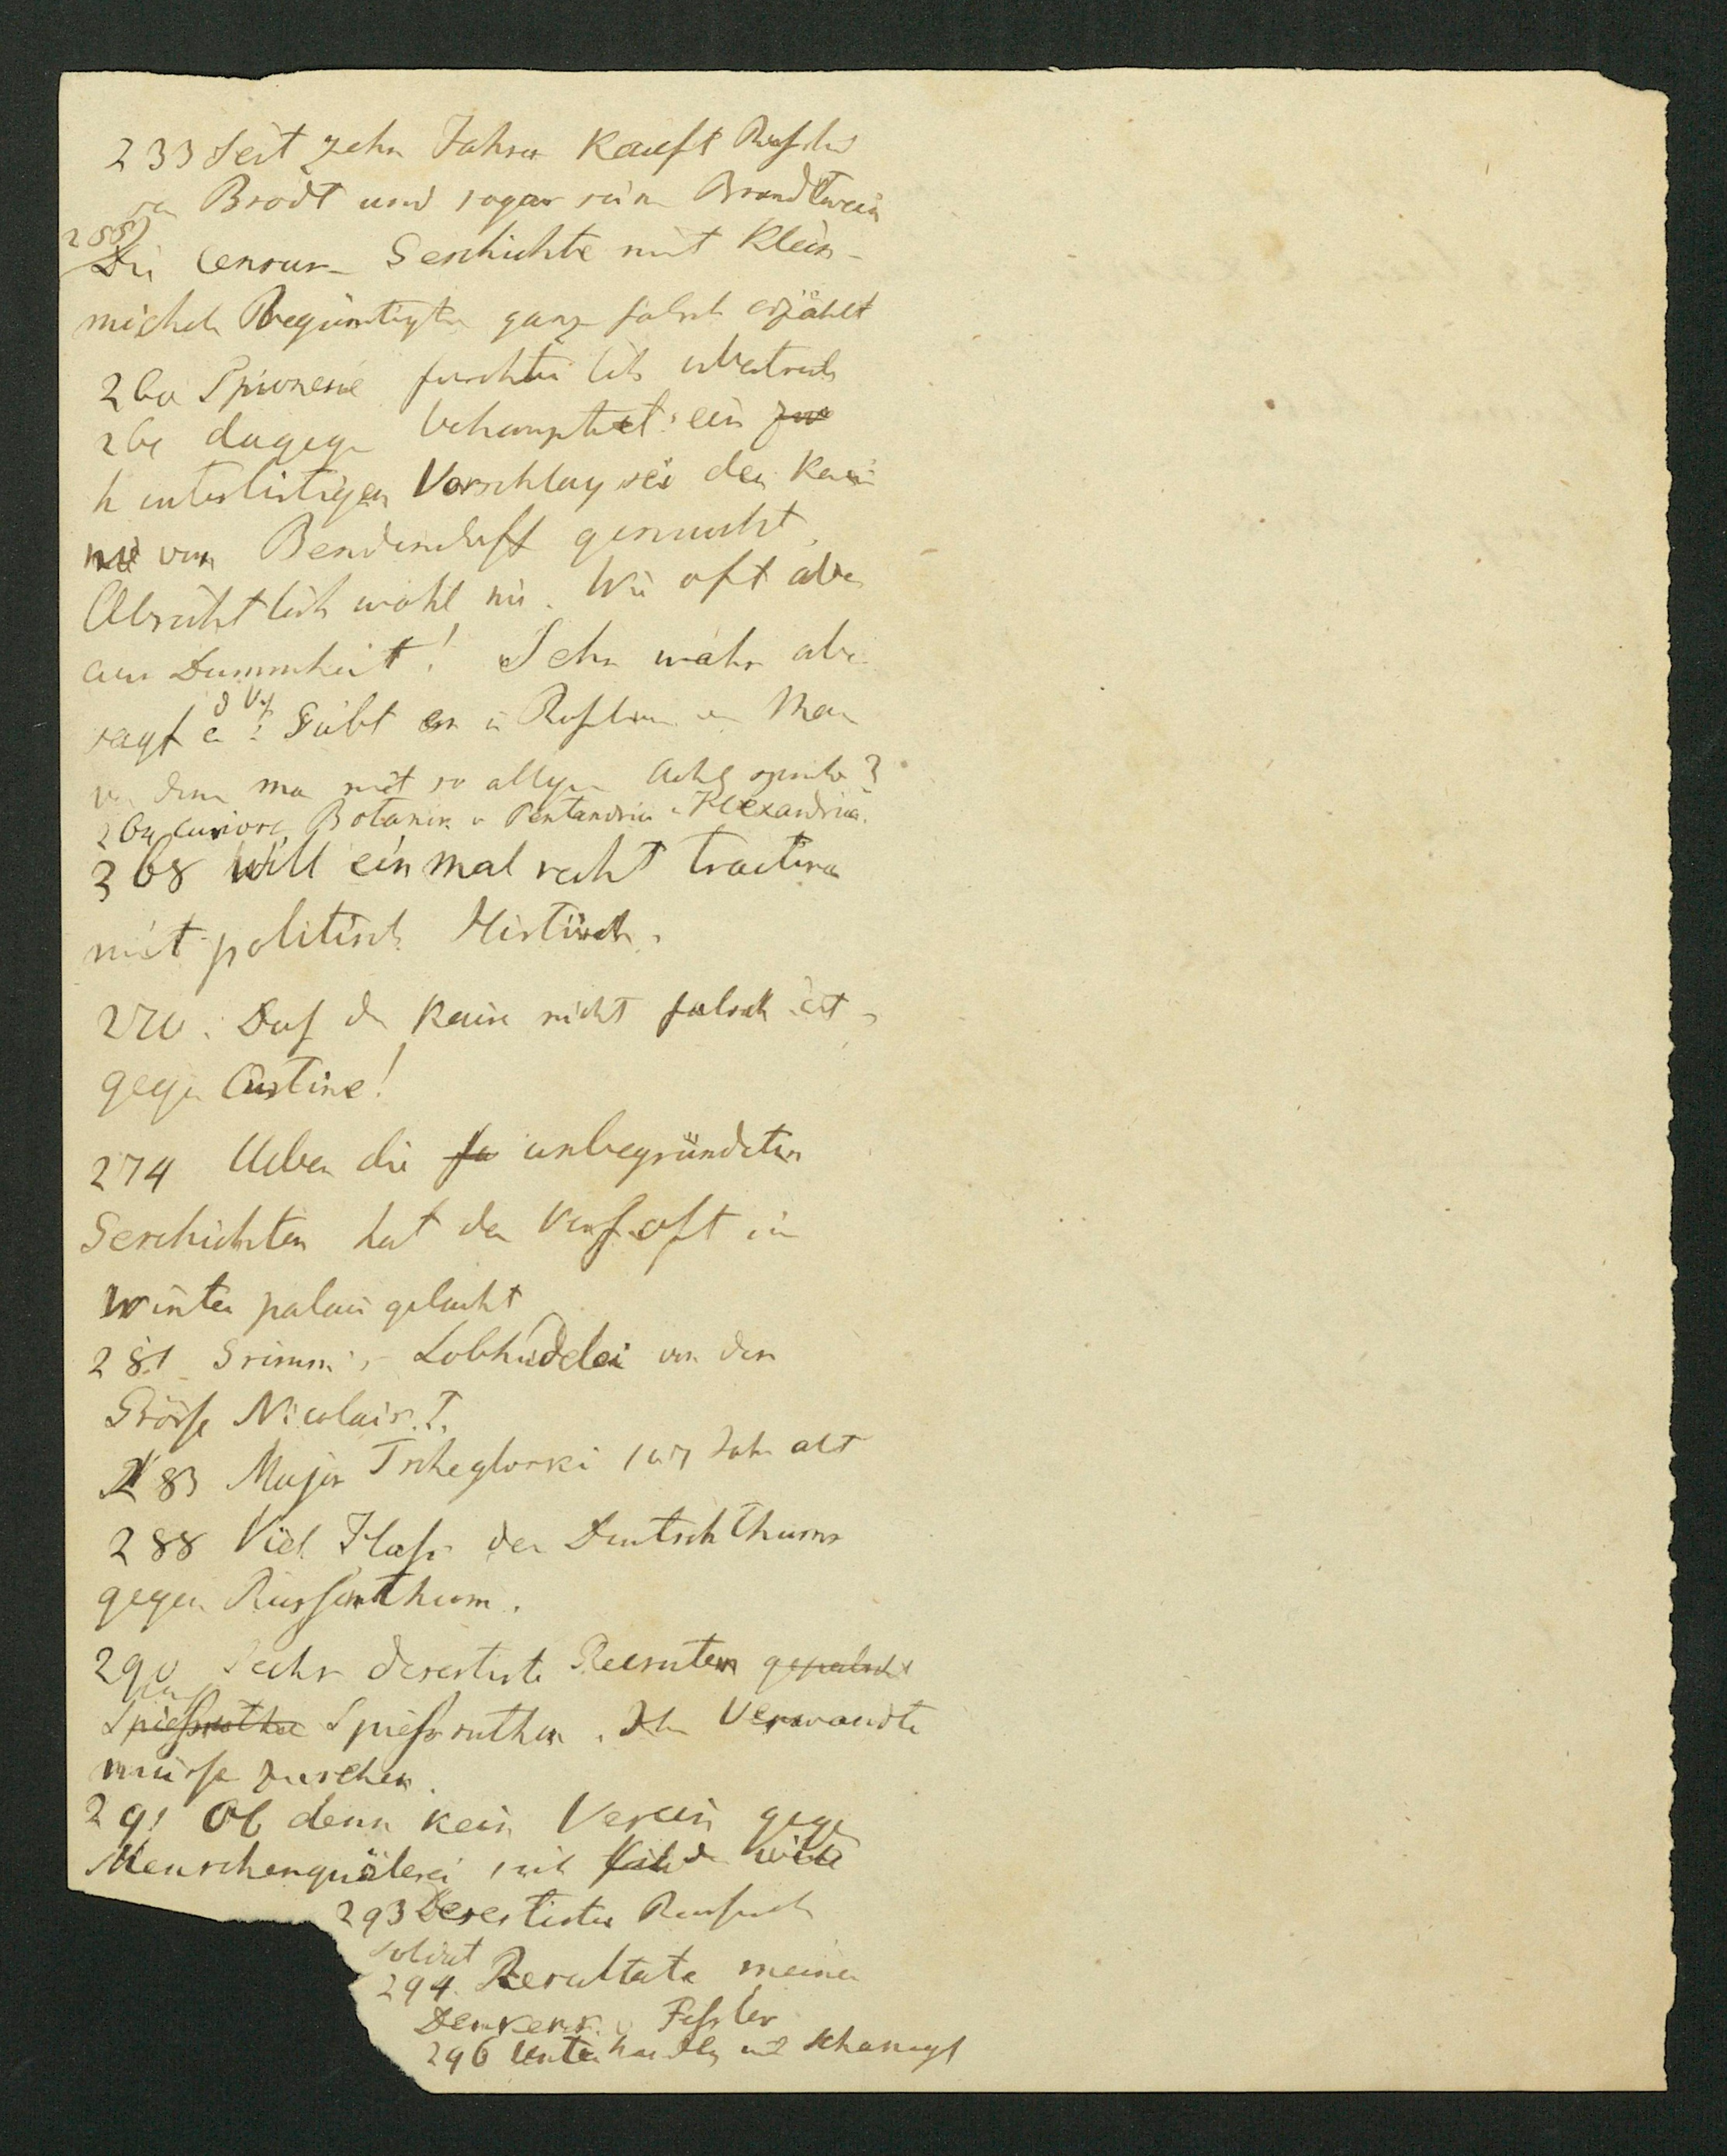 233 Seit zehn Jahren kauft Rußland
sein Brodt und sogar seinen Brandtwein
255)
Die Censur-Geschichte mit Klein-
michels Begünstigten ganz falsch erzählt
260 Spionerie fürchterlich übertrieb
261 dagegen behauptet: ein
hinterlistigen Vorschlag sei dem Kaiser
nie von Benkendorff gemacht.
Absichtlich wohl nie. Wie oft aber
aus Dummheit! Sehr wahr aber
sagt d Vf: Giebt es in Rußland ein Man
von dem man mit so allgem Achtg spricht?
264 Curiose Botanik v Pentandria Alexandria.
368 Will einmal recht tractiren
mit politisch Klistiren.
270. Daß der Kaiser nicht falsch ist,
gegen Custine!
274 Ueber die unbegründeten
Geschichten hat der Verf. oft im
Winterpalais gelacht
281 Grimm's Lobhudelei von der
Größe Nicolais. I.
283 Major Tscheglovski 107 Jahr alt
288 Viel Haß des Deutschthums
gegen Russenthum.
290 Sechs desertirte Recruten gepeitscht
Spießruthen Spießruthen. Ihre Verwandte
müssen zusehen.
291 Ob denn kein Verein gegen
Menschenquälerei sich
293 Desertirter Russisch
Soldat
294. Resultate meines
Denkens. v Fessler
296 Unterhandlg mit Schamyl